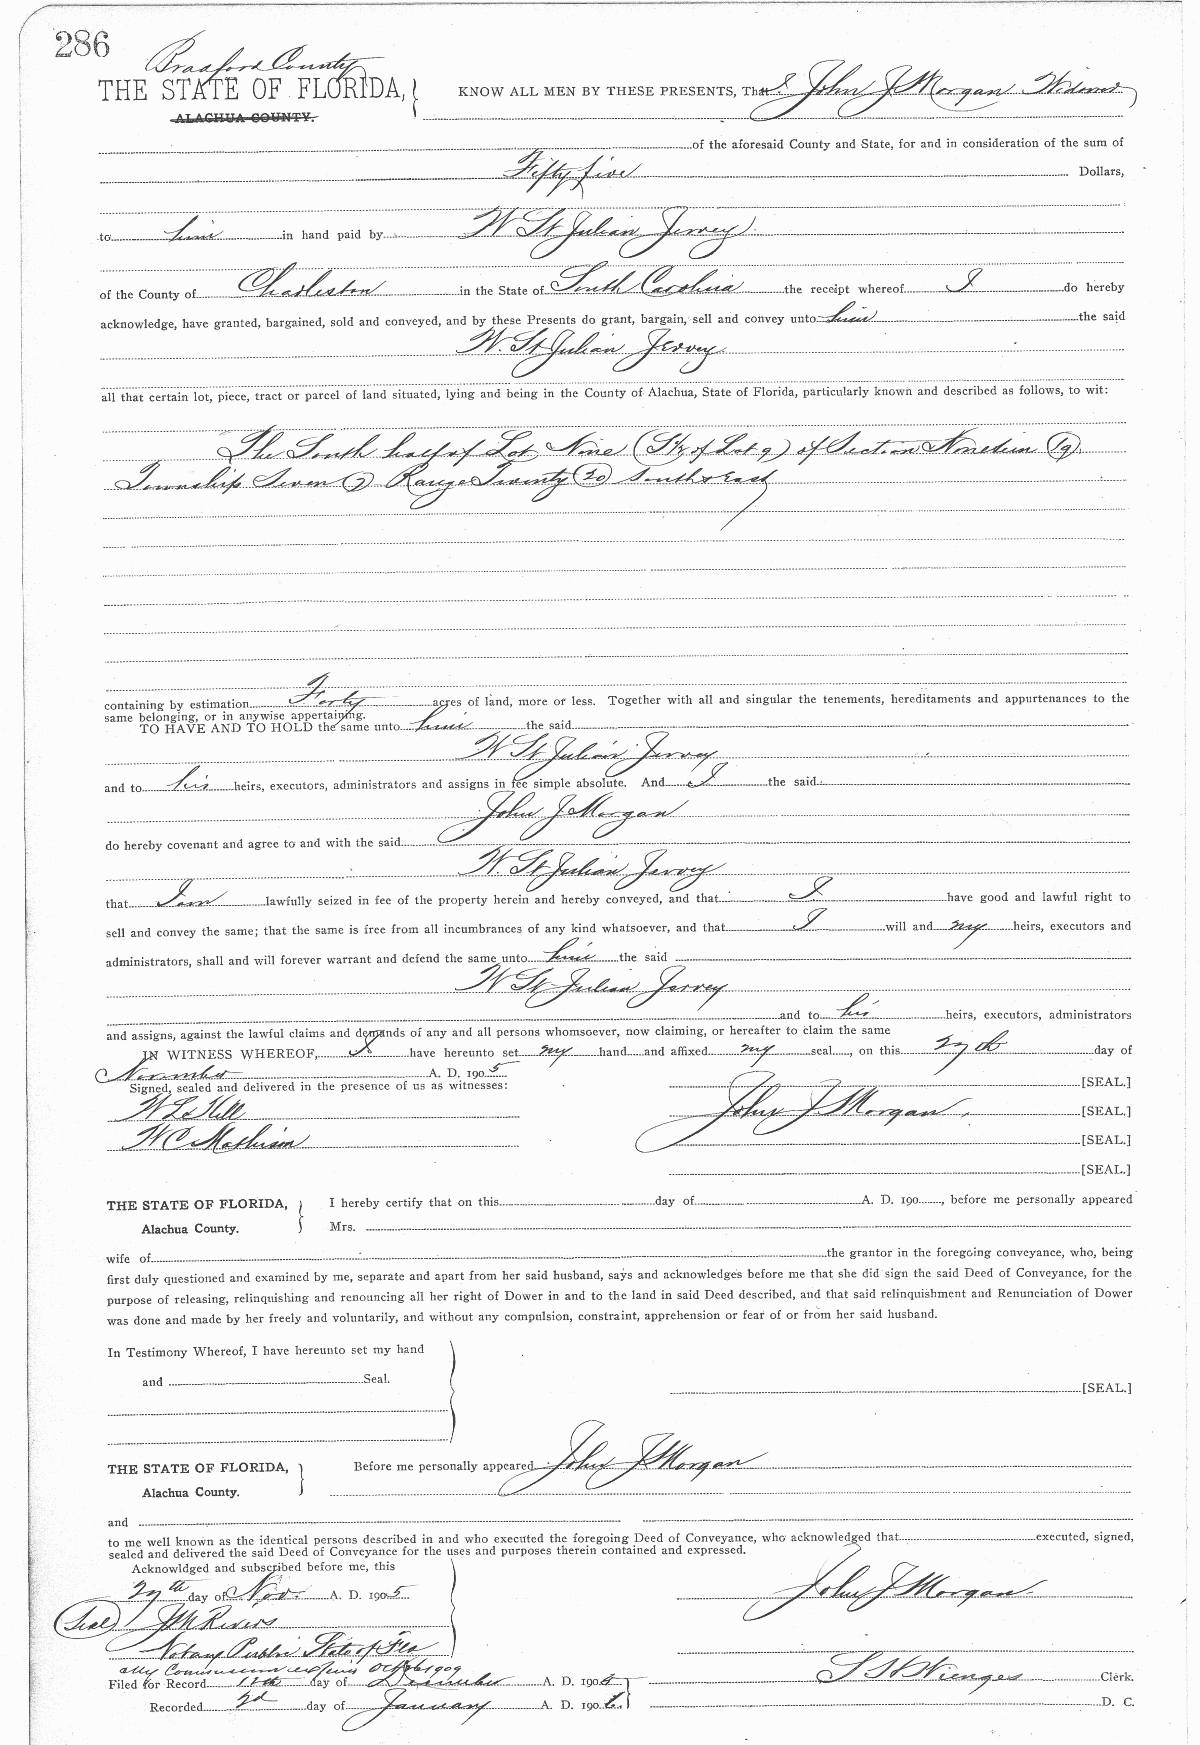 286
Bradford County
THE STATE OF FLORIDA,
ALACHUA COUNTY.
KNOW ALL MEN BY THESE PRESENTS, That I John J Morgan Widower
of the aforesaid County and State, for and in consideration of the sum of
Fifty five Dollars,
to him in hand paid by W St Julian Jervey
of the County of Charleston in the State of South Carolina the receipt whereof I do hereby
acknowledge, have granted, bargained, sold and conveyed, and by these Presents do grant, bargain, sell and convey unto him the said
W. St Julian Jervey
all that certain lot, piece, tract or parcel of land situated, lying and being in the County of Alachua, State of Florida, particularly known and described as follows, to wit:
The South half of Lot Nine (S½ of Lot 9) of Section Nineteen (19)
Township Seven (7) Range Twenty (20) South & East
containing by estimation Forty acres of land, more or less. Together with all and singular the tenements, hereditaments and appurtenances to the
same belonging, or in anywise appertaining.
TO HAVE AND TO HOLD the same unto him the said
W St Julian Jervey
and to his heirs, executors, administrators and assigns in fee simple absolute. And I the said
John J Morgan
do hereby covenant and agree to and with the said
W. St Julian Jervey
that I am lawfully seized in fee of the property herein and hereby conveyed, and that I have good and lawful right to
sell and convey the same; that the same is free from all incumbrances of any kind whatsoever, and that I will and my heirs, executors and
administrators, shall and will forever warrant and defend the same unto him the said
W St Julian Jervey
and to his heirs, executors, administrators
and assigns, against the lawful claims and demands of any and all persons whomsoever, now claiming, or hereafter to claim the same
IN WITNESS WHEREOF, I have hereunto set my hand and affixed my seal, on this 27th day of
November A. D. 1905
Signed, sealed and delivered in the presence of us as witnesses:
[SEAL.]
W L Hill
John J Morgan [SEAL.]
W C Mathison
[SEAL.]
[SEAL.]
THE STATE OF FLORIDA,
Alachua County.
I hereby certify that on this day of A. D. 190 , before me personally appeared
Mrs.
wife of the grantor in the foregoing conveyance, who, being
first duly questioned and examined by me, separate and apart from her said husband, says and acknowledges before me that she did sign the said Deed of Conveyance, for the
purpose of releasing, relinquishing and renouncing all her right of Dower in and to the land in said Deed described, and that said relinquishment and Renunciation of Dower
was done and made by her freely and voluntarily, and without any compulsion, constraint, apprehension or fear of or from her said husband.
In Testimony Whereof, I have hereunto set my hand
and Seal.
[SEAL.]
THE STATE OF FLORIDA,
Alachua County.
Before me personally appeared John J Morgan
and
to me well known as the identical persons described in and who executed the foregoing Deed of Conveyance, who acknowledged that executed, signed,
sealed and delivered the said Deed of Conveyance for the uses and purposes therein contained and expressed.
Acknowldged and subscribed before me, this
27th day of Nov. A. D. 1905
John J Morgan
(Seal) J M Rivers
Notary Public State of Fla
My Commission expires Oct 1909
Filed for Record 11th day of December A. D. 1905
S H Wienges Clerk.
Recorded 2d day of January A. D. 1906.
D. C.